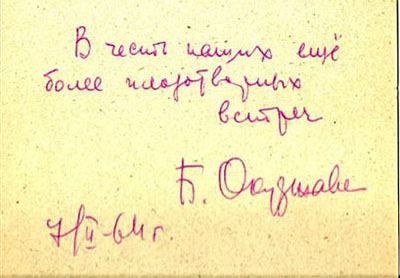 В честь наших ещё
более плодотворных
встреч
Б. Окуджава
7/II-64 г.